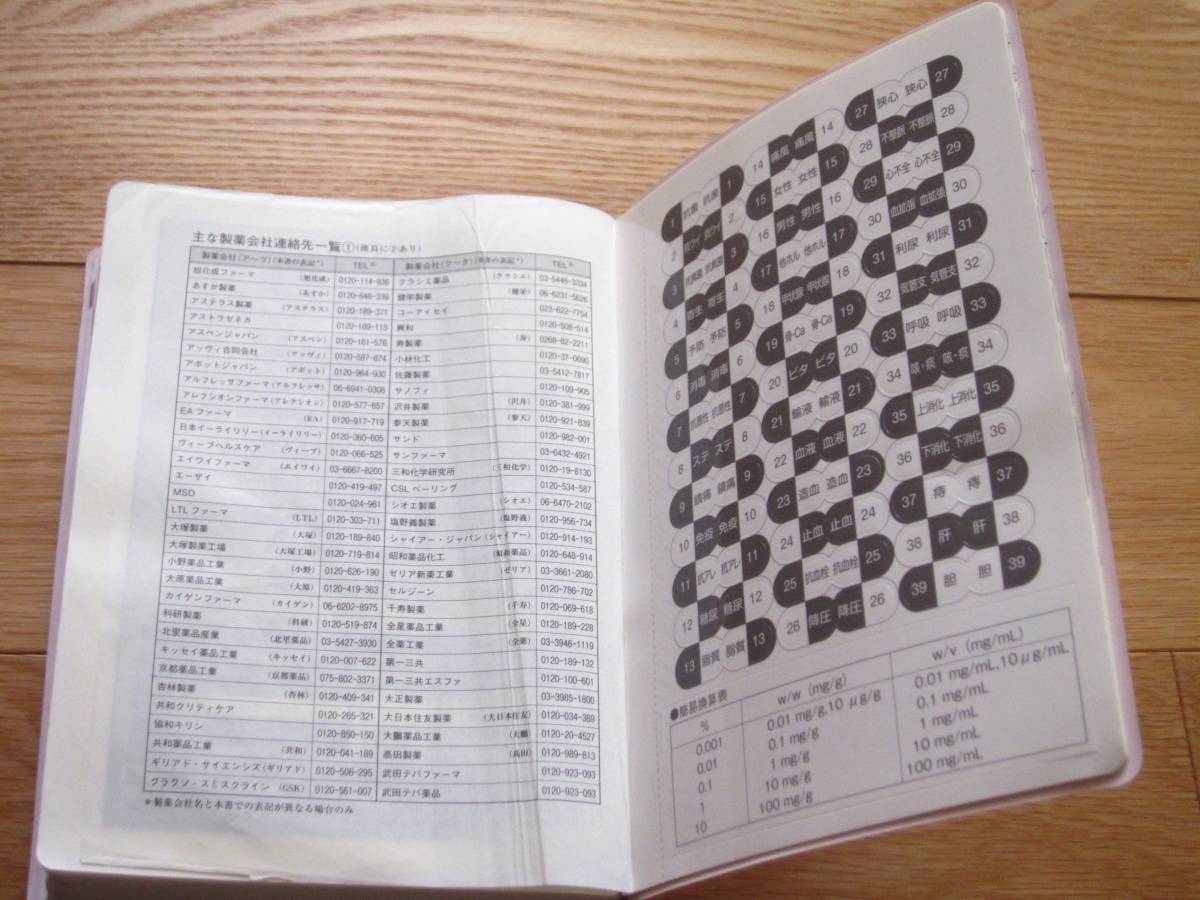 主な製薬会社連絡先一覧①(後頁に②あり)
製薬会社(ア〜グ)(本書の表記*) TEL 製薬会社(ク〜タ)(本書の表記*) TEL
旭化成ファーマ (旭化成) 0120-114-936 クラシエ薬品 (クラシエ) 03-5446-3334
あすか製薬 (あすか) 0120-848-339 健栄製薬 (健栄) 06-6231-5626
アステラス製薬 (アステラス) 0120-189-371 コーアイセイ 023-622-7754
アストラゼネカ 0120-189-115 興和 0120-508-514
アスペンジャパン (アスペン) 0120-161-576 寿製薬 (寿) 0268-82-2211
アッヴィ合同会社 (アッヴィ) 0120-587-874 小林化工 0120-37-0690
アボットジャパン (アボット) 0120-964-930 佐藤製薬 03-5412-7817
アルフレッサファーマ(アルフレッサ) 06-6941-0306 サノフィ 0120-109-905
アレクシオンファーマ(アレクシオン) 0120-577-657 沢井製薬 (沢井) 0120-381-999
EAファーマ (EA) 0120-917-719 参天製薬 (参天) 0120-921-839
日本イーライリリー(イーライリリー) 0120-360-605 サンド 0120-982-001
ヴィーブヘルスケア (ヴィーブ) 0120-066-525 サンファーマ 03-6432-4921
エイワイファーマ (エイワイ) 03-6667-8200 三和化学研究所 (三和化学) 0120-19-8130
エーザイ 0120-419-497 CSLベーリング 0120-534-587
MSD 0120-024-961 シオエ製薬 (シオエ) 06-6470-2102
LTLファーマ (LTL) 0120-303-711 塩野義製薬 (塩野義) 0120-956-734
大塚製薬 (大塚) 0120-189-840 シャイアー・ジャパン(シャイアー) 0120-914-193
大塚製薬工場 (大塚工場) 0120-719-814 昭和薬品化工 (昭和薬品) 0120-648-914
小野薬品工業 (小野) 0120-626-190 ゼリア新薬工業 (ゼリア) 03-3661-2080
大原薬品工業 (大原) 0120-419-363 セルジーン 0120-786-702
カイゲンファーマ (カイゲン) 06-6202-8975 千寿製薬 (千寿) 0120-069-618
科研製薬 (科研) 0120-519-874 全星薬品工業 (全星) 0120-189-228
北里薬品産業 (北里薬品) 03-5427-3930 全薬工業 (全薬) 03-3946-1119
キッセイ薬品工業 (キッセイ) 0120-007-622 第一三共 0120-189-132
京都薬品工業 (京都薬品) 075-802-3371 第一三共エスファ 0120-100-601
杏林製薬 (杏林) 0120-409-341 大正製薬 03-3985-1800
共和クリティケア 0120-265-321 大日本住友製薬 (大日本住友) 0120-034-389
協和キリン 0120-850-150 大鵬薬品工業 (大鵬) 0120-20-4527
共和薬品工業 (共和) 0120-041-189 高田製薬 (高田) 0120-989-813
ギリアド・サイエンシズ(ギリアド) 0120-506-295 武田テバファーマ 0120-923-093
グラクソ・スミスクライン(GSK) 0120-561-007 武田テバ薬品 0120-923-093
*製薬会社名と本書での表記が異なる場合のみ
1 抗菌 抗菌 1
2 抗ウイ 抗ウイ 2
3 抗真菌 抗真菌 3
4 寄生 寄生 4
5 予防 予防 5
6 消毒 消毒 6
7 抗悪性 抗悪性 7
8 ステ ステ 8
9 鎮痛 鎮痛 9
10 免疫 免疫 10
11 抗アレ 抗アレ 11
12 糖尿 糖尿 12
13 脂質 脂質 13
14 痛風 痛風 14
15 女性 女性 15
16 男性 男性 16
17 他ホル 他ホル 17
18 甲状腺 甲状腺 18
19 骨・Ca 骨・Ca 19
20 ビタ ビタ 20
21 輸液 輸液 21
22 血液 血液 22
23 造血 造血 23
24 止血 止血 24
25 抗血栓 抗血栓 25
26 降圧 降圧 26
27 狭心 狭心 27
28 不整脈 不整脈 28
29 心不全 心不全 29
30 血拡張 血拡張 30
31 利尿 利尿 31
32 気管支 気管支 32
33 呼吸 呼吸 33
34 咳・痰 咳・痰 34
35 上消化 上消化 35
36 下消化 下消化 36
37 痔 痔 37
38 肝 肝 38
39 胆 胆 39
●簡易換算表
% w/w (mg/g) w/v (mg/mL)
0.001 0.01 mg/g,10 μg/g 0.01 mg/mL,10 μg/mL
0.01 0.1 mg/g 0.1 mg/mL
0.1 1 mg/g 1 mg/mL
1 10 mg/g 10 mg/mL
10 100 mg/g 100 mg/mL